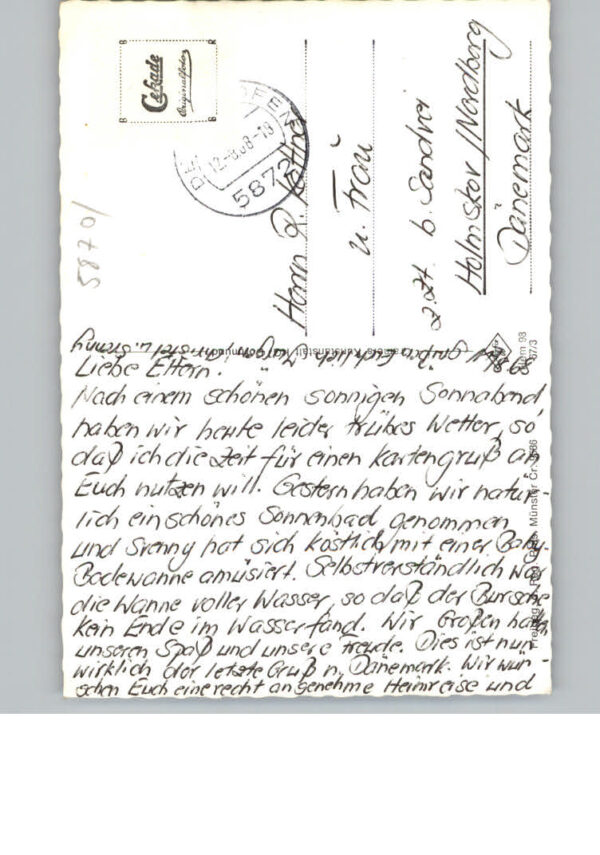 Cekade
Originalfoto
12.-8.68-18
5872
5870/
Herrn R.
u. Frau
z.Zt. b. Sandvei
Holmskov / Nordborg
Dänemark
Liebe Eltern.
Nach einem schönen sonnigen Sonnabend
haben wir heute leider trübes Wetter, so
daß ich die Zeit für einen Kartengruß an
Euch nutzen will. Gestern haben wir natür-
lich ein schönes Sonnenbad genommen
und Svenny hat sich köstlich mit einer Baby-
Badewanne amüsiert. Selbstverständlich war
die Wanne voller Wasser, so daß der Bursche
kein Ende im Wasser fand. Wir Großen haben
unseren Spaß und unsere Freude. Dies ist nun
wirklich der letzte Gruß n. Dänemark. Wir wün-
schen Euch eine recht angenehme Heimreise und